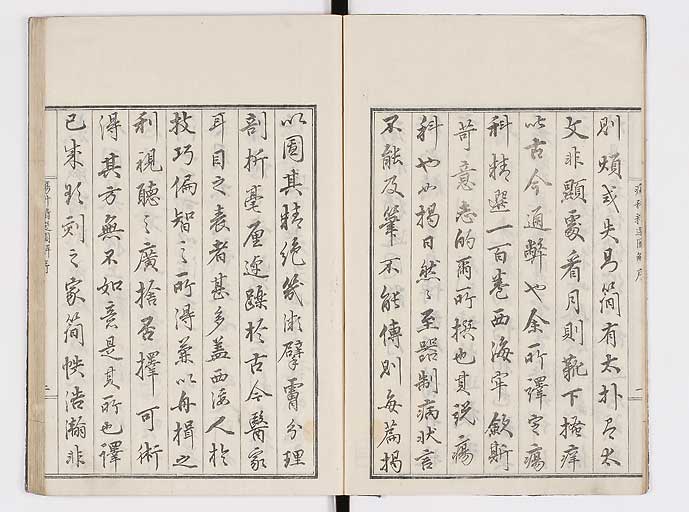 瘍科精選圖解序
則煩或失簡有太朴太
文非顯霧看月則靴下搔痒
此古今通弊也余所譯定瘍
科精選一百卷西海牢歛斯
苛意志的爾所撰也其說瘍
科也如揭日然至器制病狀言
不能及筆不能傳則每篇揭
以圖其精絕術擘分理
剖析毫厘於古今醫家
耳目之表者甚多盖西海人於
技巧偏智之所得兼以舟揖之
利視聽之廣捨否擇可術
得其方無不如意是其所也譯
已成刻之家簡帙浩瀚非
瘍科精選圖解序
二